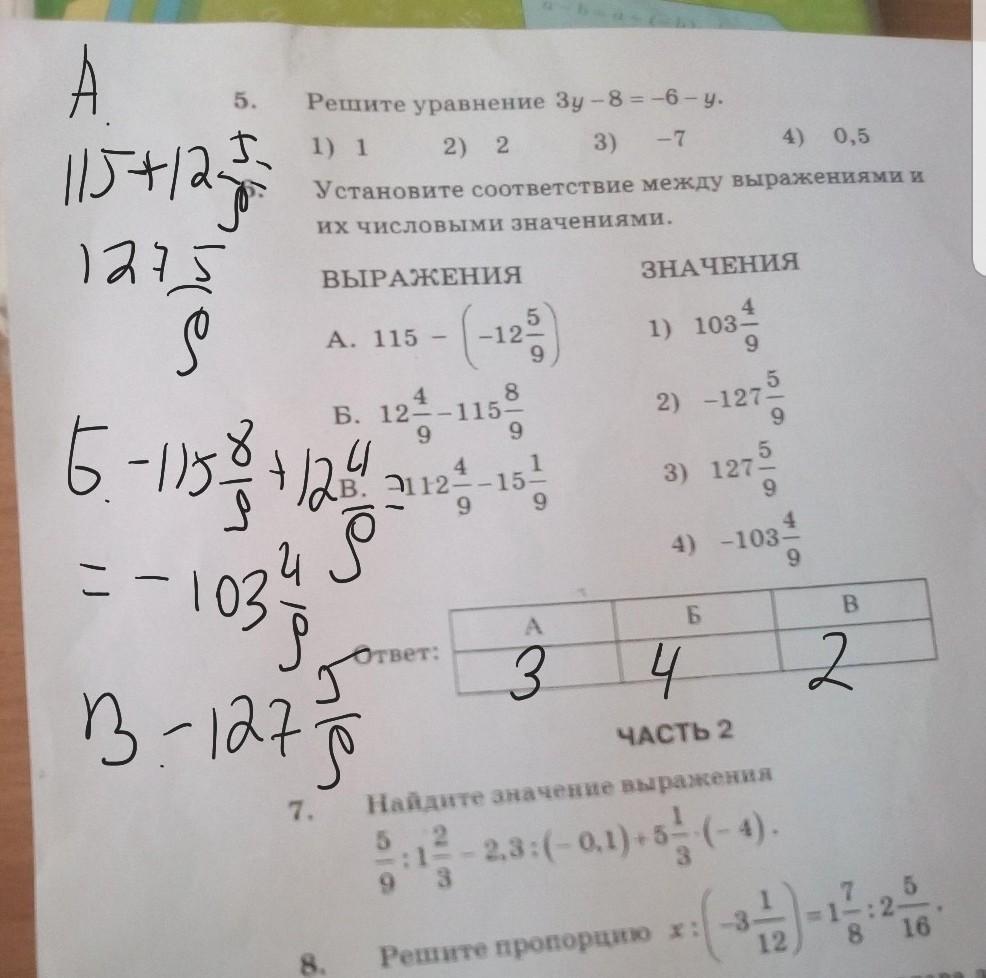 5. Решите уравнение 3y – 8 = –6 – y.
1) 1 2) 2 3) –7 4) 0,5
Установите соответствие между выражениями и
их числовыми значениями.
ВЫРАЖЕНИЯ ЗНАЧЕНИЯ
А. 115 – (–12 5/9) 1) 103 4/9
Б. 12 4/9 – 115 8/9 2) –127 5/9
В. –112 4/9 – 15 1/9 3) 127 5/9
4) –103 4/9
Ответ:
А Б В
3 4 2
ЧАСТЬ 2
7. Найдите значение выражения
5/9 : 1 2/3 – 2,3 : (– 0,1) + 5 1/3 · (– 4).
8. Решите пропорцию x : (–3 1/12) = 1 7/8 : 2 5/16.
А.
115 + 12 5/9
127 5/9
Б. –115 8/9 + 12 4/9 =
= – 103 4/9
В. – 127 5/9